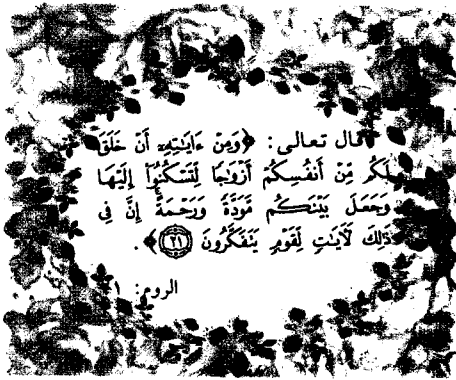 قال تعالى: ﴿وَمِنْ ءَايَٰتِهِۦٓ أَنْ خَلَقَ
لَكُم مِّنْ أَنفُسِكُمْ أَزْوَٰجًا لِّتَسْكُنُوٓا۟ إِلَيْهَا
وَجَعَلَ بَيْنَكُم مَّوَدَّةً وَرَحْمَةً إِنَّ فِى
ذَٰلِكَ لَءَايَٰتٍ لِّقَوْمٍ يَتَفَكَّرُونَ ٢١﴾.
الروم: